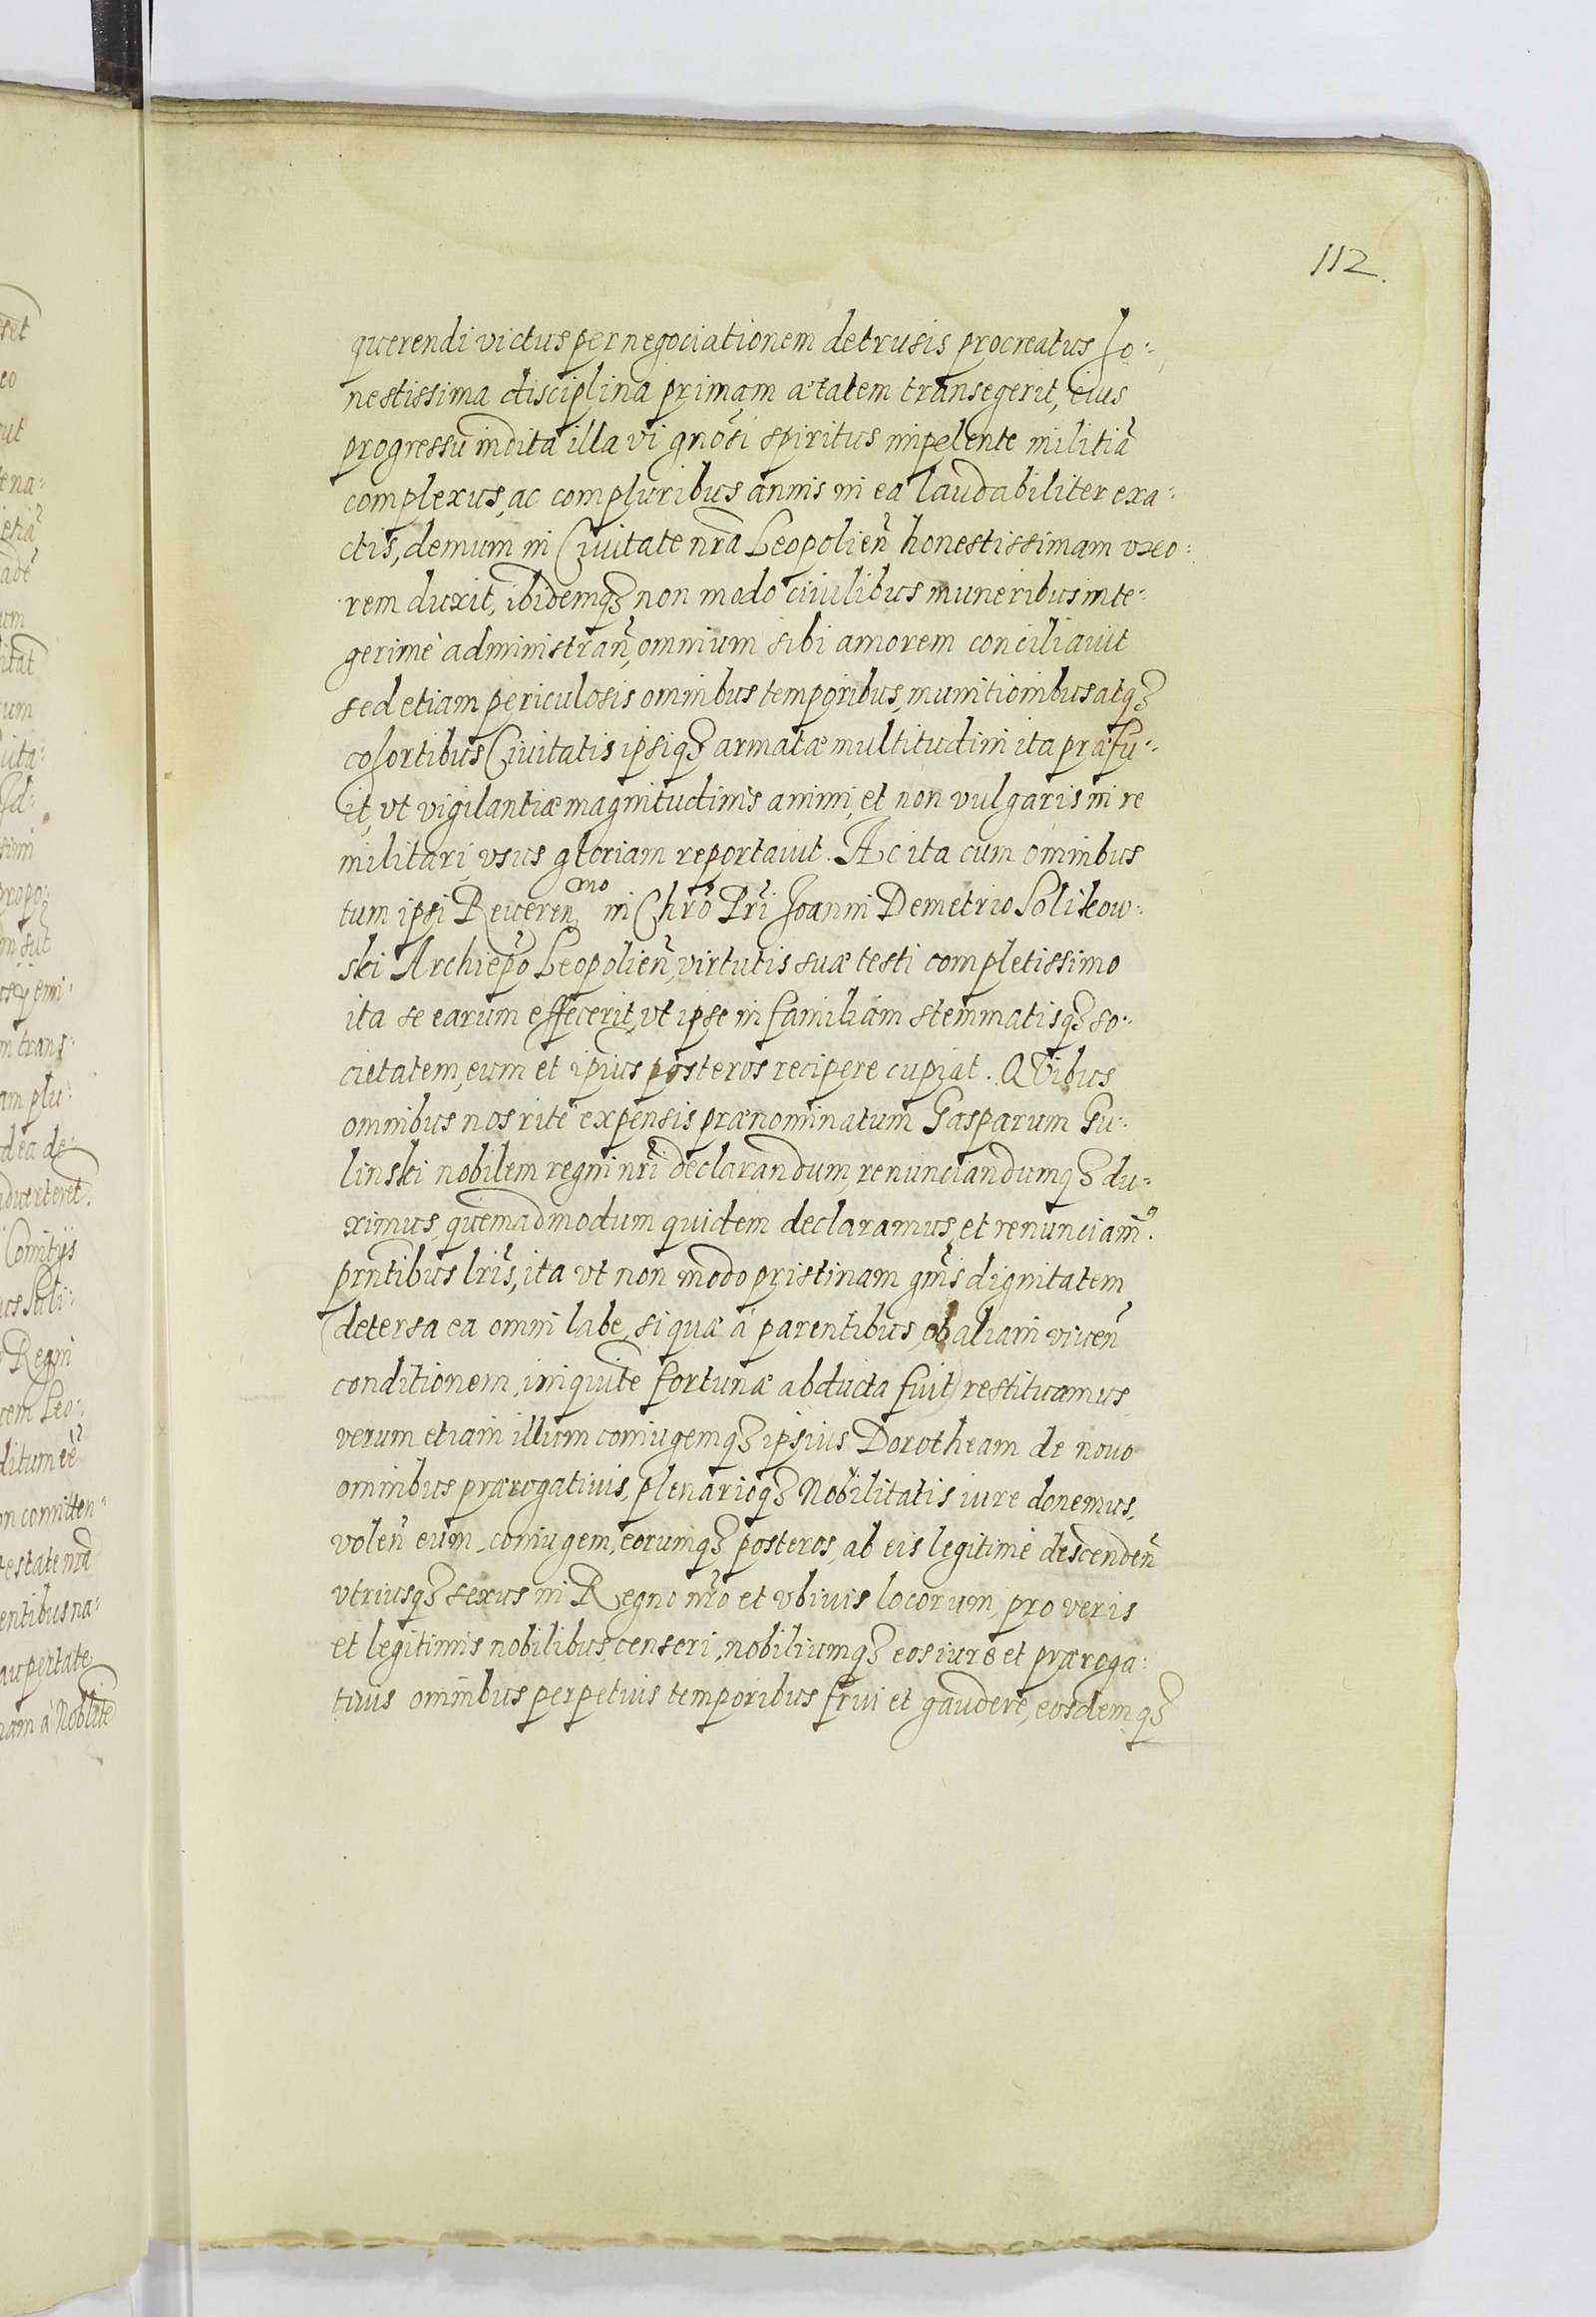 112.
quærendi victus per negociationem detrusis procreatus ho:
nestissima disciplina primam ætatem transegerit, eius
progressu indita illa vi gnõsi spiritus impelente militiã
complexus, ac compluribus annis in ea laudabiliter exa:
ctis, demum in Ciuitate nrã Leopolieñ honestissimam vxo:
rem duxit, ibidemqȝ non modo ciuilibus muneribus inte:
gerimè administrañ, omnium sibi amorem conciliauit
sed etiam periculosis omnibus temporibus, munitionibus atqȝ
cohortibus Ciuitatis ipsiqȝ armatæ multitudini ita præfu:
it, vt vigilantiæ magnitudinis animi, et non vulgaris in re
militari vsus gloriam reportauit. Ac ita cum omnibus
tum ipsi Reueren^mo in Chrõ Prĩ Joanni Demetrio Solikow:
ski Archiepõ Leopolieñ, virtutis suæ testi completissimo
ita se carum effecerit, vt ipse in familiam stemmatisqȝ so:
cietatem, eum et ipius posteros recipere cupiat. Quibus
omnibus nos ritè expensis prænominatum Gasparum Gu:
linski nobilem regni nrĩ declarandum, renunciandumqȝ du:
ximus, quemadmodum quidem declaramus, et renunciam⁹.
prñtibus lrĩs, ita vt non modo pristinam gñis dignitatem
(detersa ea omni labe, si quæ à parentibus, ob aliam viuen̄
conditionem, iniquite fortunæ abducta fuit) restituamus
verum etiam illum coniugemqȝ ipsius Dorotheam de nouo
omnibus prærogatiuis, plenarioqȝ Nobilitatis iure donemus,
voleñ eum, coniugem, eorumqȝ posteros, ab eis legitimè descendeñ
vtriusqȝ sexus in Regno nrõ et vbiuis locorum, pro veris
et legitimis nobilibus censeri, nobiliumqȝ eos iure et præroga:
tiuis omnibus perpetuis temporibus frui et gaudere, eosdemqȝ